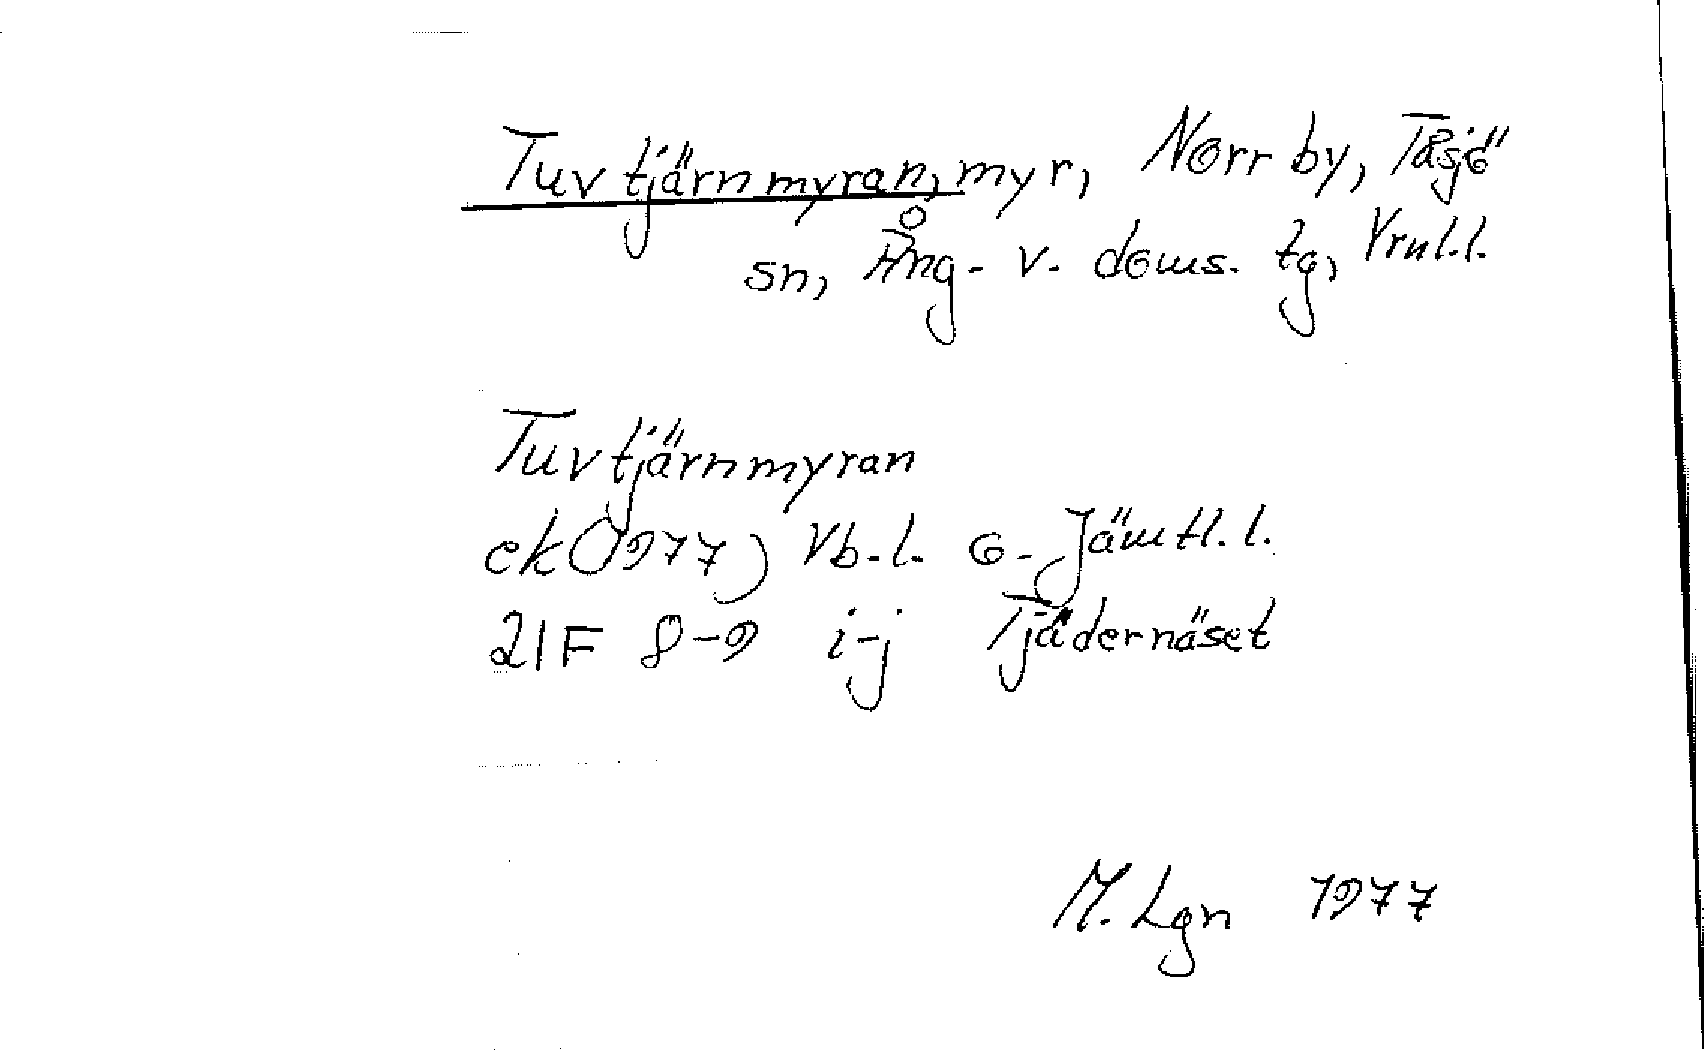 Tuvtjärnmyran, myr, Norrby, Tåsjö
sn, Ång. v. doms. tg, Vrnl.l.
Tuvtjärnmyran
ek (1977) Vb.l. o. Jämtl.l.
21F 8-9 i-j Tjädernäset
M. Lgn 1977